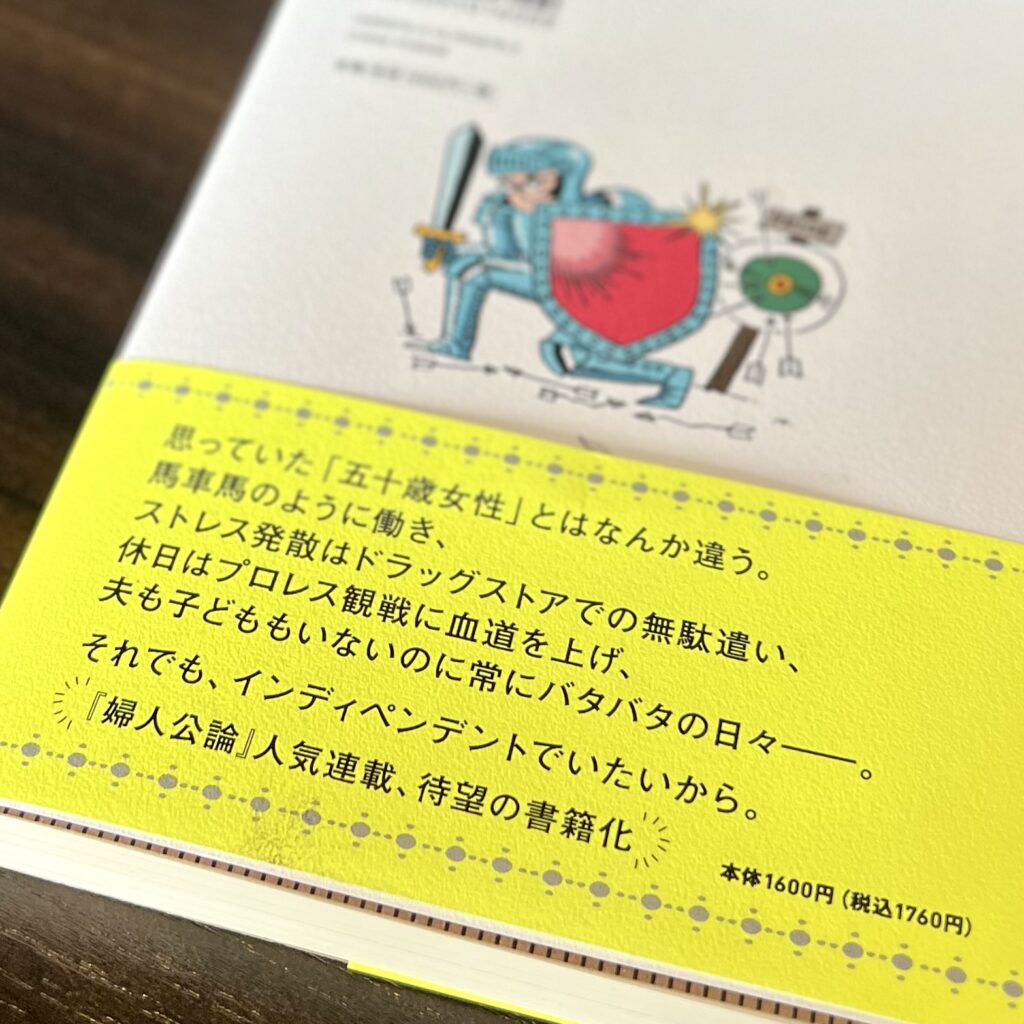 思っていた「五十歳女性」とはなんか違う。
馬車馬のように働き、
ストレス発散はドラッグストアでの無駄遣い、
休日はプロレス観戦に血道を上げ、
夫も子どももいないのに常にバタバタの日々――。
それでも、インディペンデントでいたいから。
『婦人公論』人気連載、待望の書籍化
本体1600円（税込1760円）